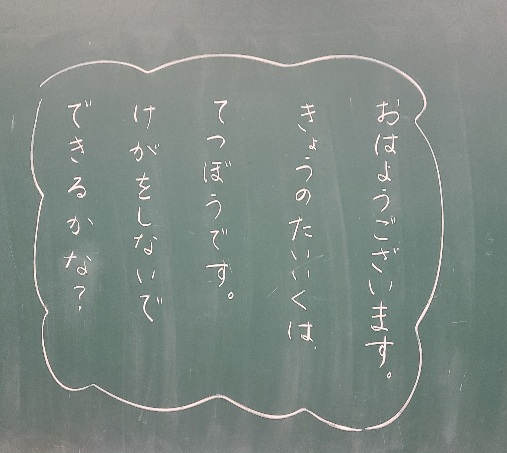 おはようございます。
きょうのたいいくは
てつぼうです。
けがをしないで
できるかな?